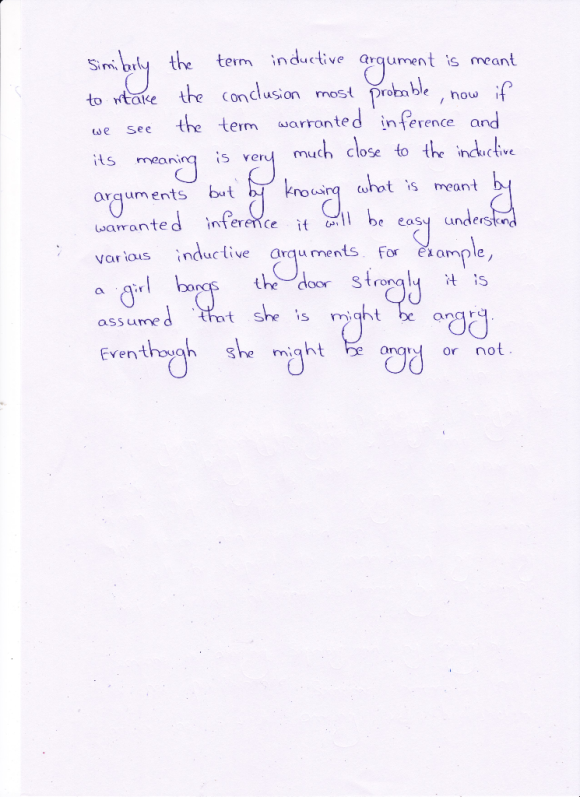 Similarly the term inductive argument is meant
to make the conclusion most probable, now if
we see the term warranted inference and
its meaning is very much close to the inductive
arguments but by knowing what is meant by
warranted inference it will be easy understand
various inductive arguments. For example,
a girl bangs the door strongly it is
assumed that she is might be angry.
Eventhough she might be angry or not.